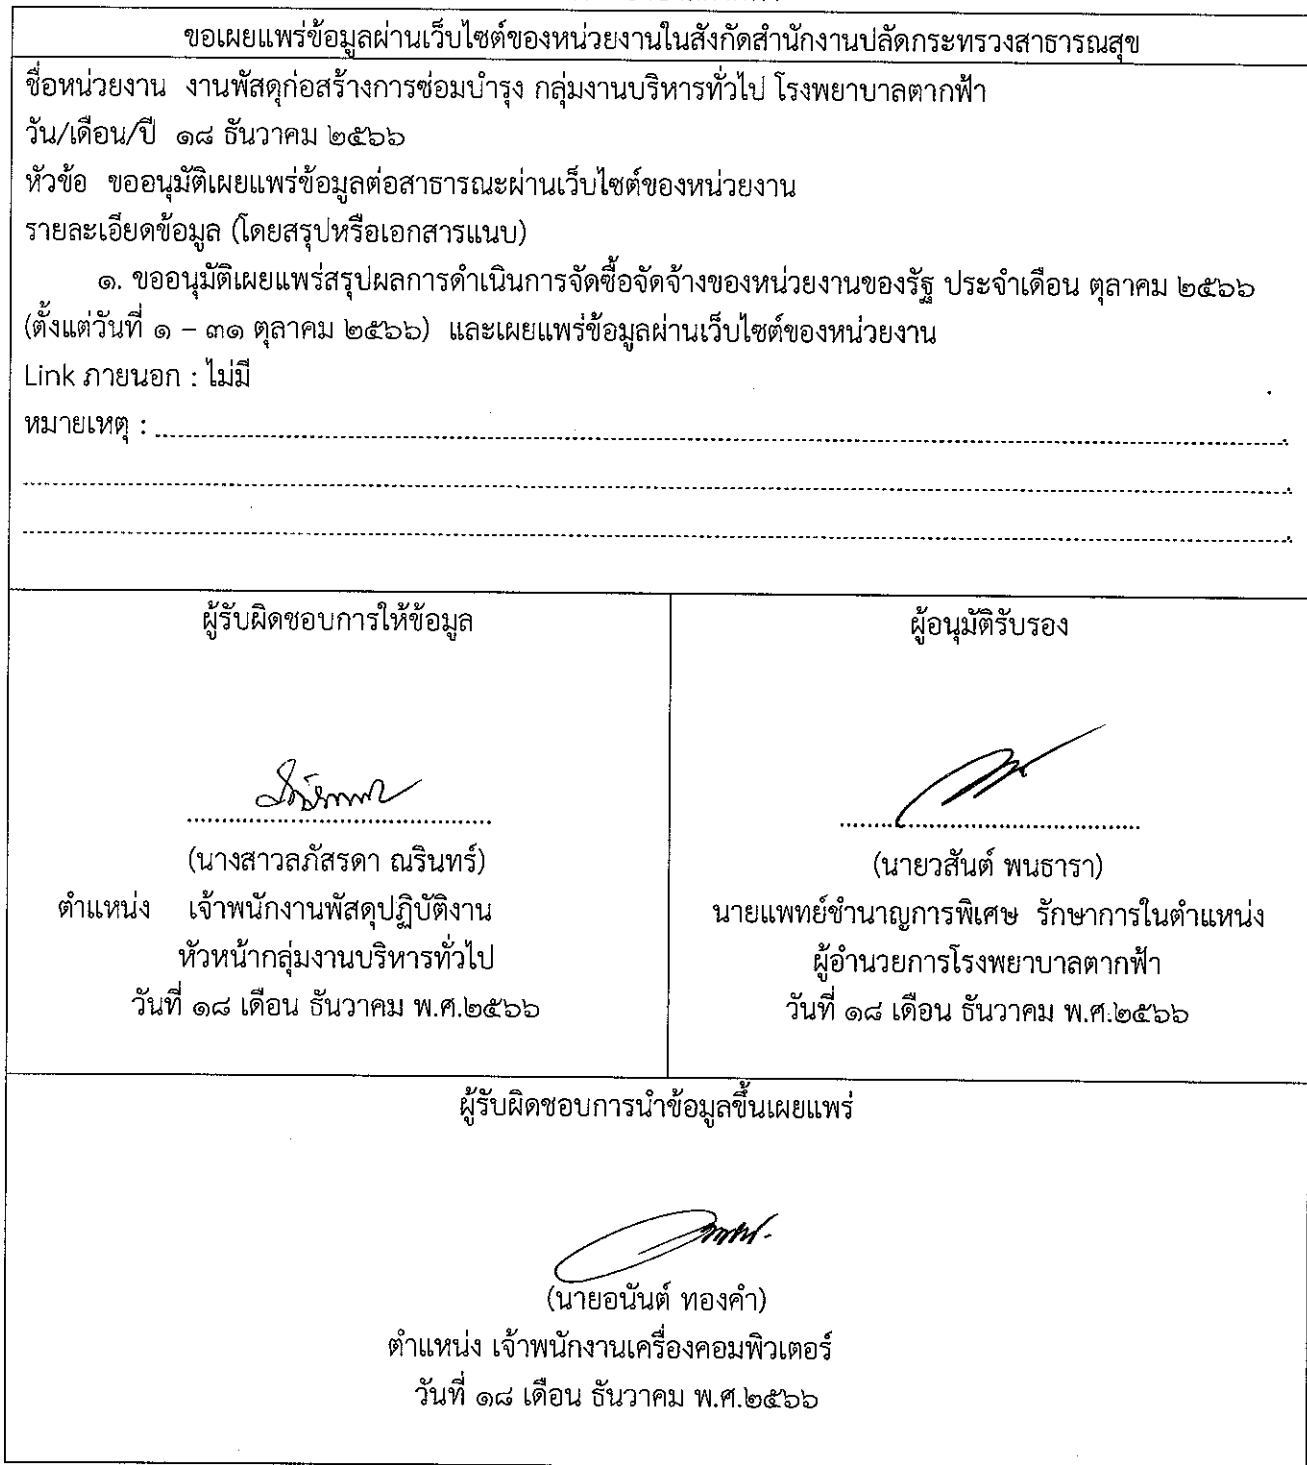 ขอเผยแพร่ข้อมูลผ่านเว็บไซต์ของหน่วยงานในสังกัดสำนักงานปลัดกระทรวงสาธารณสุข
ชื่อหน่วยงาน งานพัสดุก่อสร้างการซ่อมบำรุง กลุ่มงานบริหารทั่วไป โรงพยาบาลตากฟ้า
วัน/เดือน/ปี ๑๘ ธันวาคม ๒๕๖๖
หัวข้อ ขออนุมัติเผยแพร่ข้อมูลต่อสาธารณะผ่านเว็บไซต์ของหน่วยงาน
รายละเอียดข้อมูล (โดยสรุปหรือเอกสารแนบ)
๑. ขออนุมัติเผยแพร่สรุปผลการดำเนินการจัดซื้อจัดจ้างของหน่วยงานของรัฐ ประจำเดือน ตุลาคม ๒๕๖๖
(ตั้งแต่วันที่ ๑ – ๓๑ ตุลาคม ๒๕๖๖) และเผยแพร่ข้อมูลผ่านเว็บไซต์ของหน่วยงาน
Link ภายนอก : ไม่มี
หมายเหตุ :
ผู้รับผิดชอบการให้ข้อมูล
(นางสาวลภัสรดา ณรินทร์)
ตำแหน่ง เจ้าพนักงานพัสดุปฏิบัติงาน
หัวหน้ากลุ่มงานบริหารทั่วไป
วันที่ ๑๘ เดือน ธันวาคม พ.ศ.๒๕๖๖
ผู้อนุมัติรับรอง
(นายวสันต์ พนธารา)
นายแพทย์ชำนาญการพิเศษ รักษาการในตำแหน่ง
ผู้อำนวยการโรงพยาบาลตากฟ้า
วันที่ ๑๘ เดือน ธันวาคม พ.ศ.๒๕๖๖
ผู้รับผิดชอบการนำข้อมูลขึ้นเผยแพร่
(นายอนันต์ ทองคำ)
ตำแหน่ง เจ้าพนักงานเครื่องคอมพิวเตอร์
วันที่ ๑๘ เดือน ธันวาคม พ.ศ.๒๕๖๖